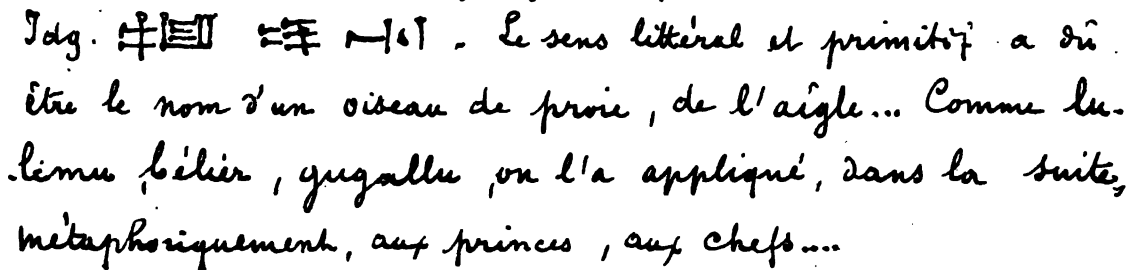 Idg. . Le sens littéral et primitif a dû
être le nom d'un oiseau de proie, de l'aigle... Comme lu-
limu, bélier, gugallu, on l'a appliqué, dans la suite,
métaphoriquement, aux princes, aux chefs....